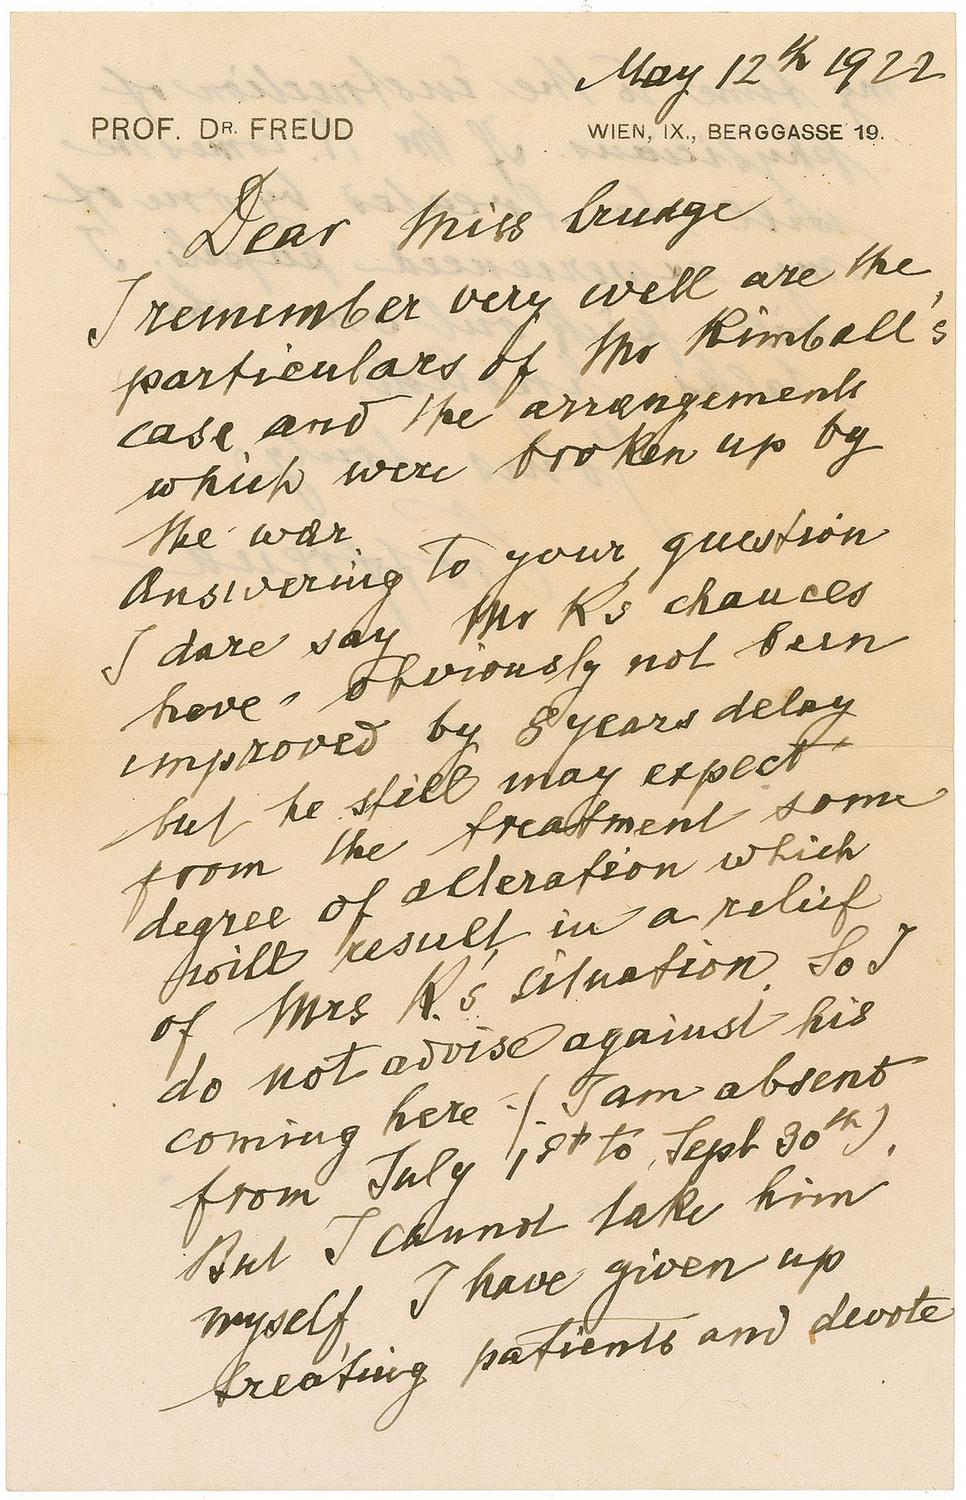 May 12th 1922
PROF. DR. FREUD WIEN, IX., BERGGASSE 19.
Dear Miss
I remember very well are the
particulars of Mr Kimball's
case and the arrangements
which were broken up by
the war
Answering to your question
I dare say Mr K's chances
have obviously not been
improved by 8 years delay
but he still may expect
from the treatment some
degree of alteration which
will result in a relief
of Mrs K's situation. So I
do not advise against his
coming here (I am absent
from July 1st to Sept 30th).
But I cannot take him
myself I have given up
treating patients and devote